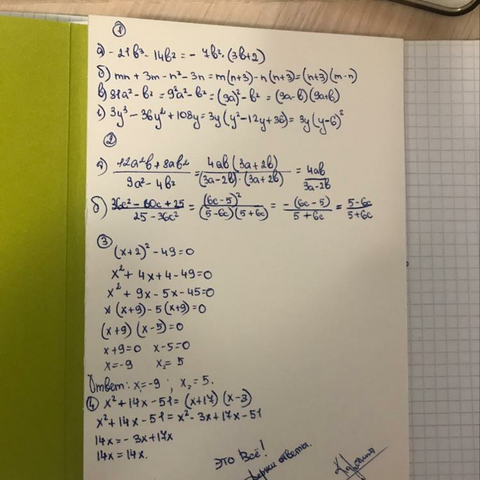 ①
а) -21b³ - 14b² = -7b² · (3b+2)
б) mn + 3m - n² - 3n = m(n+3) - n(n+3) = (n+3)(m-n)
в) 81a² - b² = 9²a² - b² = (9a)² - b² = (9a-b)(9a+b)
г) 3y³ - 36y² + 108y = 3y(y² - 12y + 36) = 3y(y-6)²
②
а) 12a²b + 8ab² / 9a² - 4b² = 4ab(3a+2b) / (3a-2b)·(3a+2b) = 4ab / 3a-2b
б) 36c² - 60c + 25 / 25 - 36c² = (6c-5)² / (5-6c)(5+6c) = -(6c-5) / 5+6c = 5-6c / 5+6c
③
(x+2)² - 49 = 0
x² + 4x + 4 - 49 = 0
x² + 9x - 5x - 45 = 0
x(x+9) - 5(x+9) = 0
(x+9)(x-5) = 0
x+9=0 x-5=0
x=-9 x₂= 5
Ответ: x=-9 ; x₂ = 5.
④ x² + 14x - 51 = (x+17)(x-3)
x² + 14x - 51 = x² - 3x + 17x - 51
14x = - 3x + 17x
14x = 14x.
ЭТО ВСЁ!
ответа.